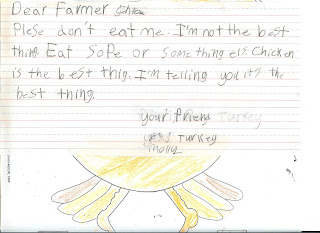 Dear Farmer
Plese don't eat me. I'm not the best
thing. Eat Sope or some thing els. Chicken
is the best thig. I'm telling you it's the
best thing.
your friend Turkey
Turkey
molly